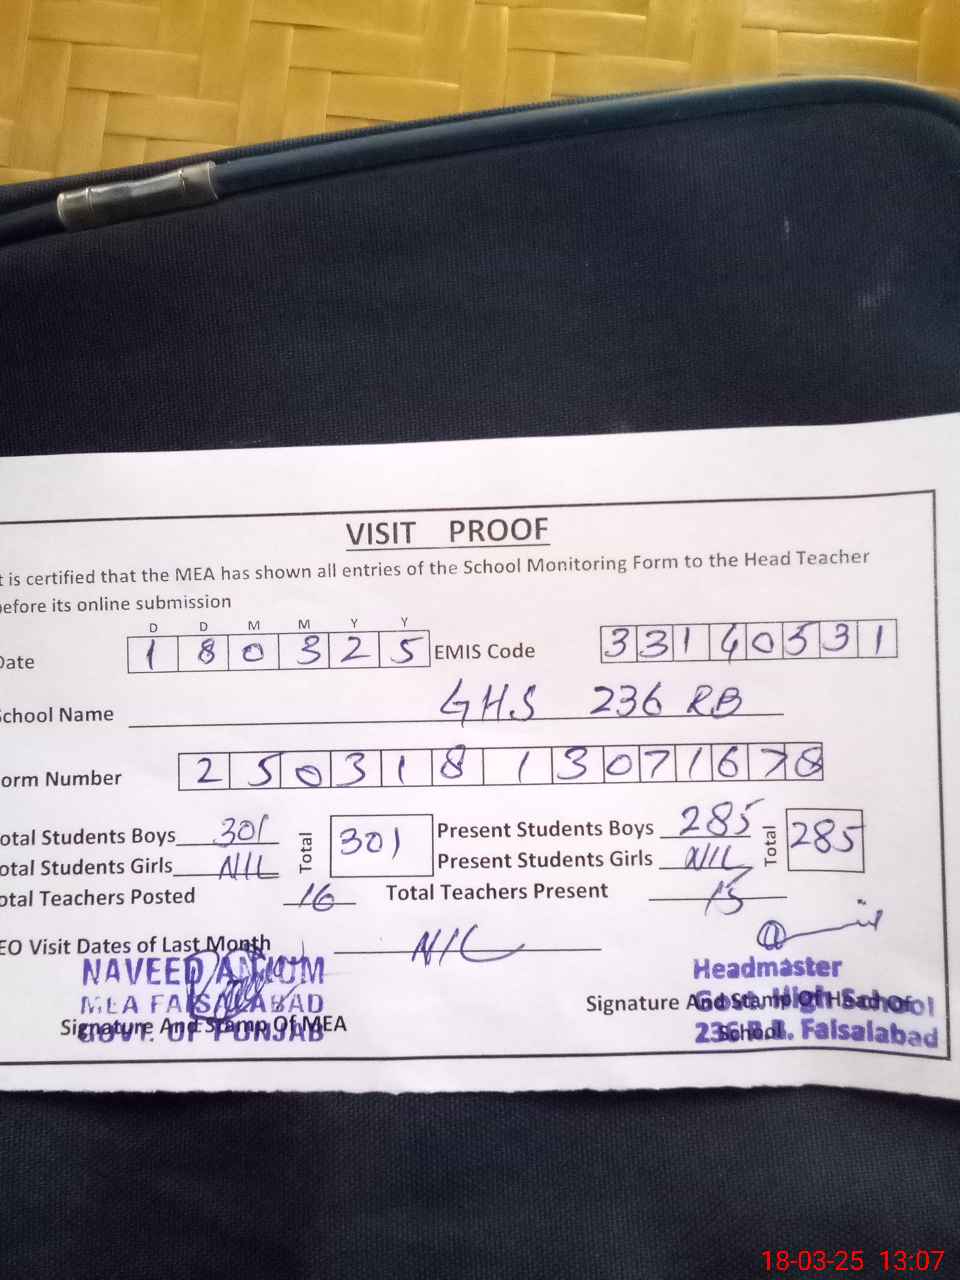 VISIT PROOF
t is certified that the MEA has shown all entries of the School Monitoring Form to the Head Teacher
before its online submission
D D M M Y Y
Date 1 8 0 3 2 5 EMIS Code 3 3 1 4 0 5 3 1
School Name GHS 236 RB
orm Number 2 5 0 3 1 8 1 3 0 7 1 6 7 8
otal Students Boys 301 Total 301 Present Students Boys 285 Total 285
otal Students Girls NIL Present Students Girls NIL
otal Teachers Posted 16 Total Teachers Present 15
EO Visit Dates of Last Month NIL
NAVEED ANJUM
MEA FAISALABAD
GOVT. OF PUNJAB
Signature And Stamp Of MEA
Headmaster
Govt. High School
236 R.B. Faisalabad
Signature And Stamp Of Head of
School
18-03-25 13:07